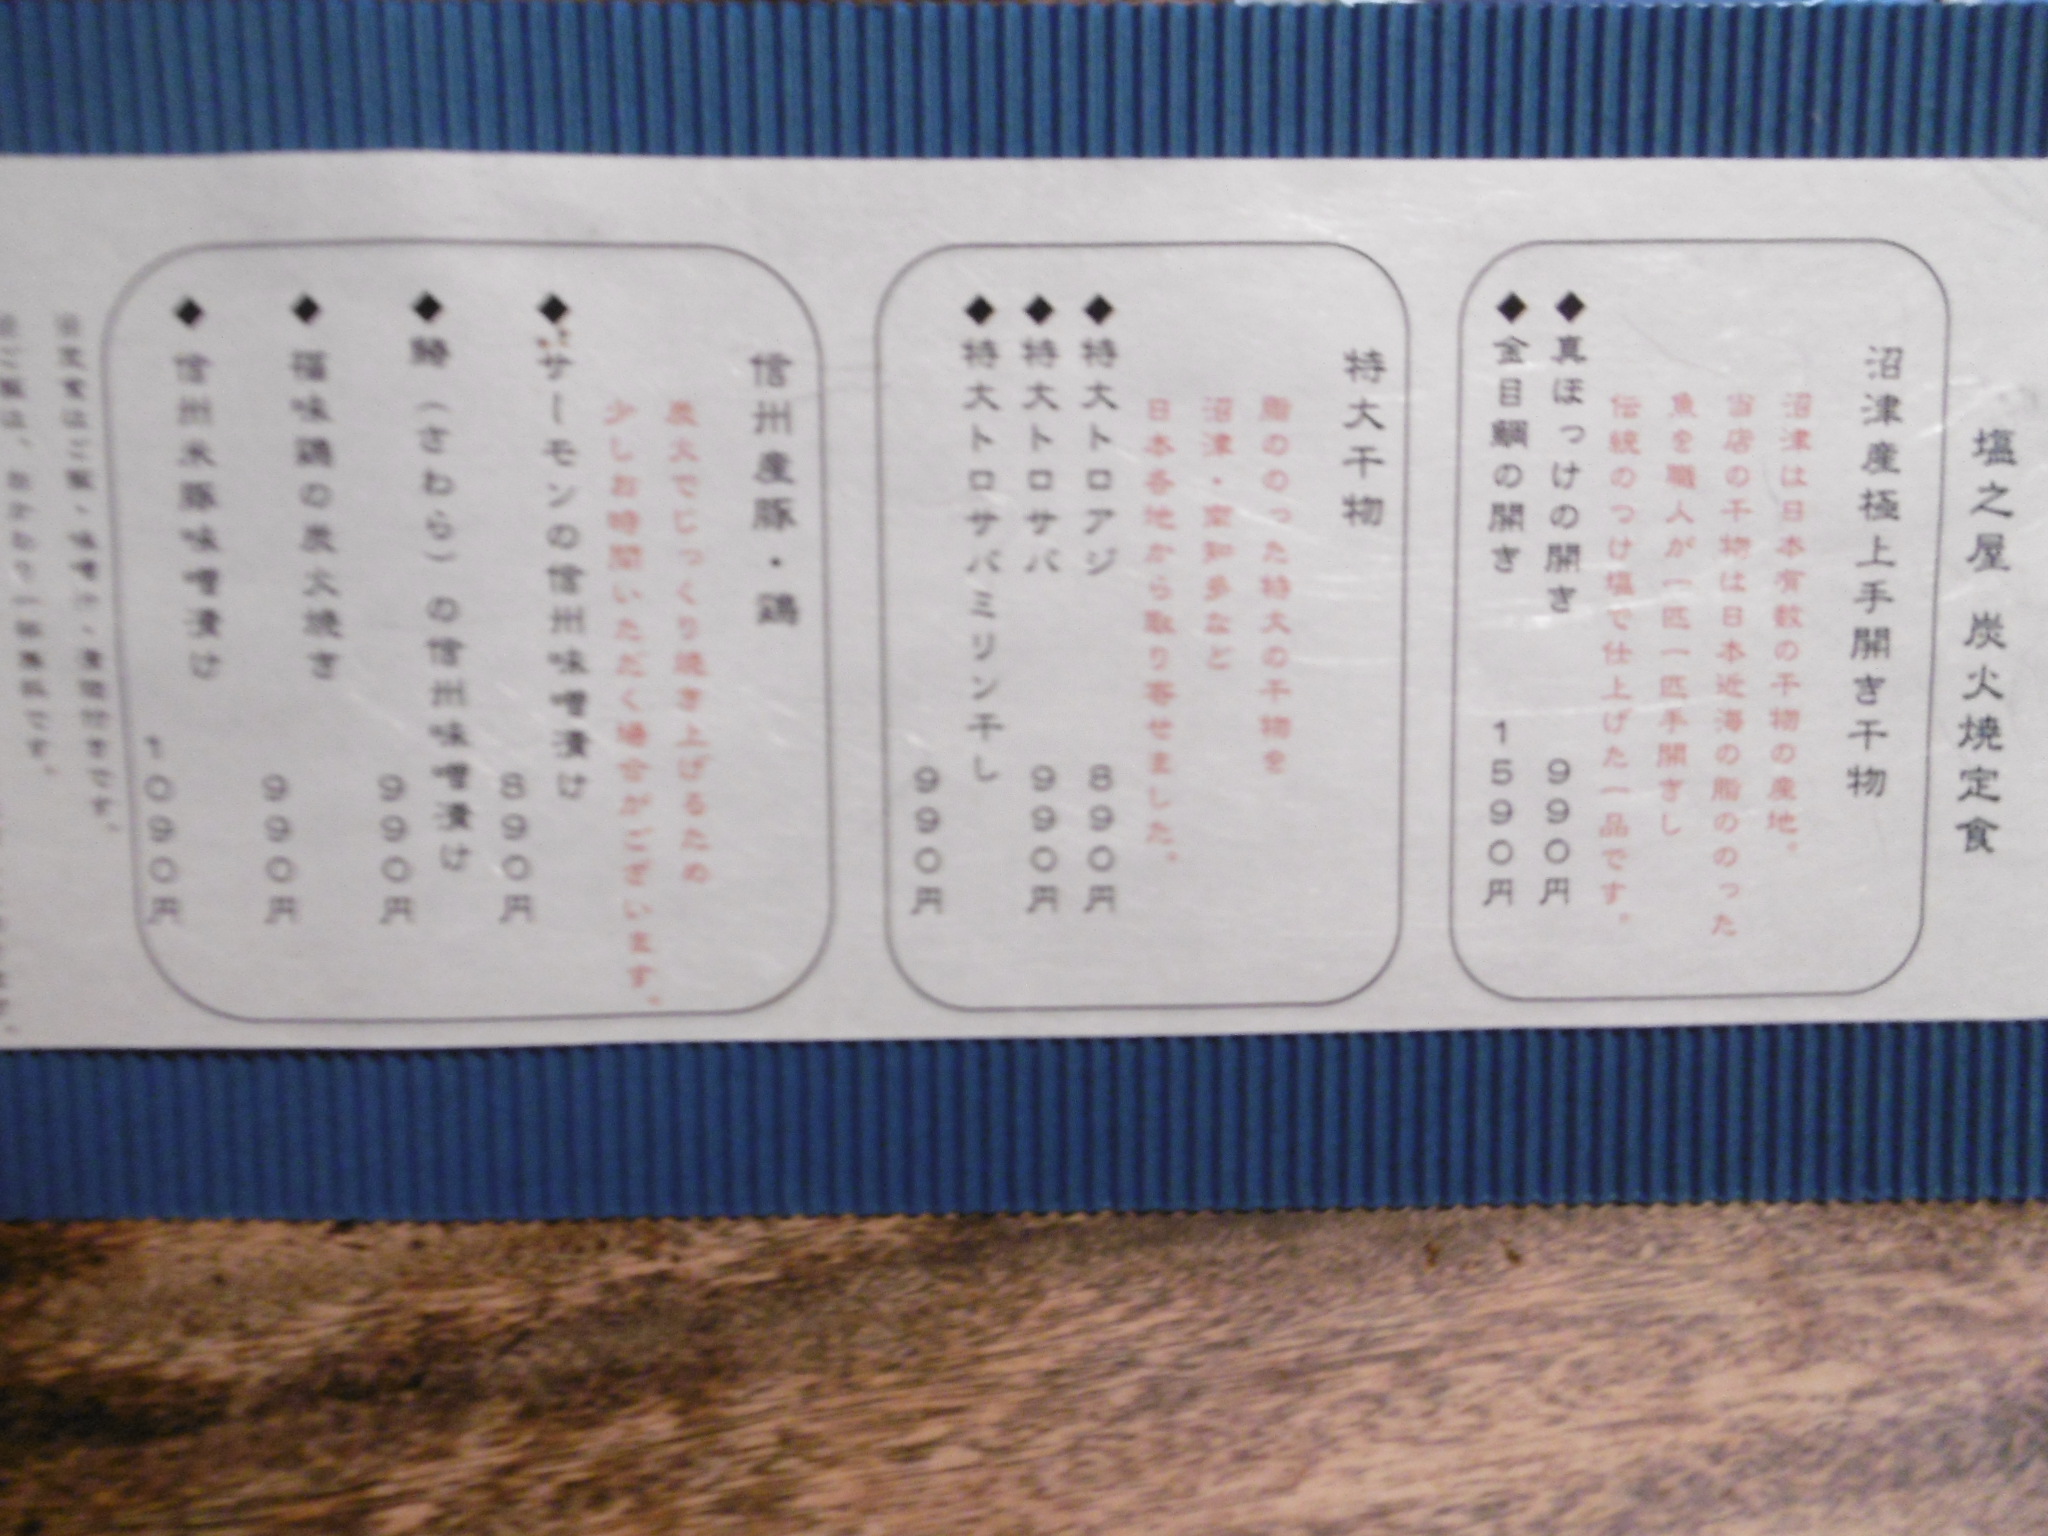 塩之屋 炭火焼定食
沼津産極上手開き干物
沼津は日本有数の干物の産地。
当店の干物は日本近海の脂ののった
魚を職人が一匹一匹手開きし
伝統のつけ塩で仕上げた一品です。
◆真ほっけの開き 990円
◆金目鯛の開き 1590円
特大干物
脂ののった特大の干物を
沼津・室知多など
日本各地から取り寄せました。
◆特大トロアジ 890円
◆特大トロサバ 990円
◆特大トロサバミリン干し 990円
信州産豚・鶏
炭火でじっくり焼き上げるため
少しお時間いただく場合がございます。
◆サーモンの信州味噌漬け 890円
◆鰆(さわら)の信州味噌漬け 990円
◆福味鶏の炭火焼き 990円
◆信州米豚味噌漬け 1090円
※定食はご飯・味噌汁・